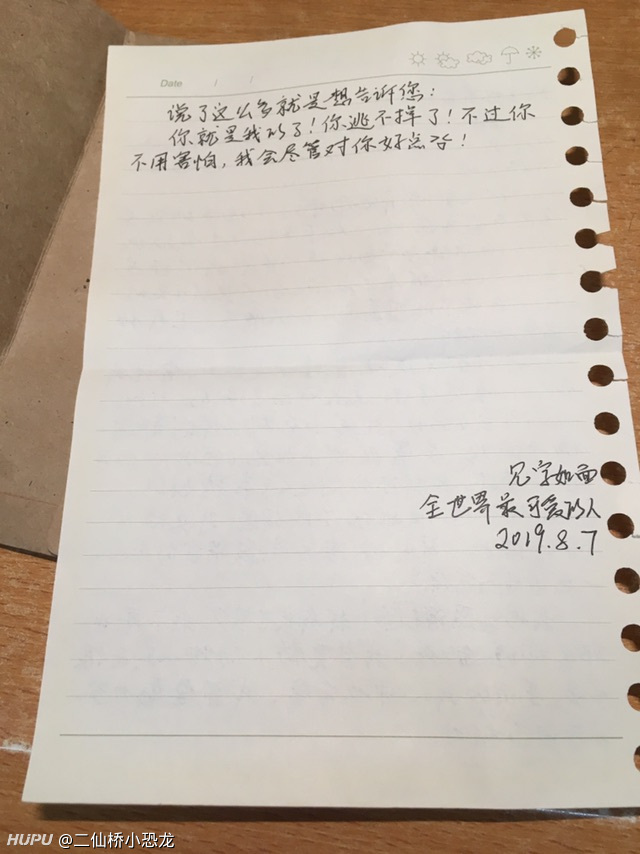 Date / /
说了这么多就是想告诉您：
你就是我的了！你逃不掉了！不过你
不用害怕，我会尽管对你好点哈！
见字如面
全世界最可爱的人
2019.8.7
HUPU @二仙桥小恐龙